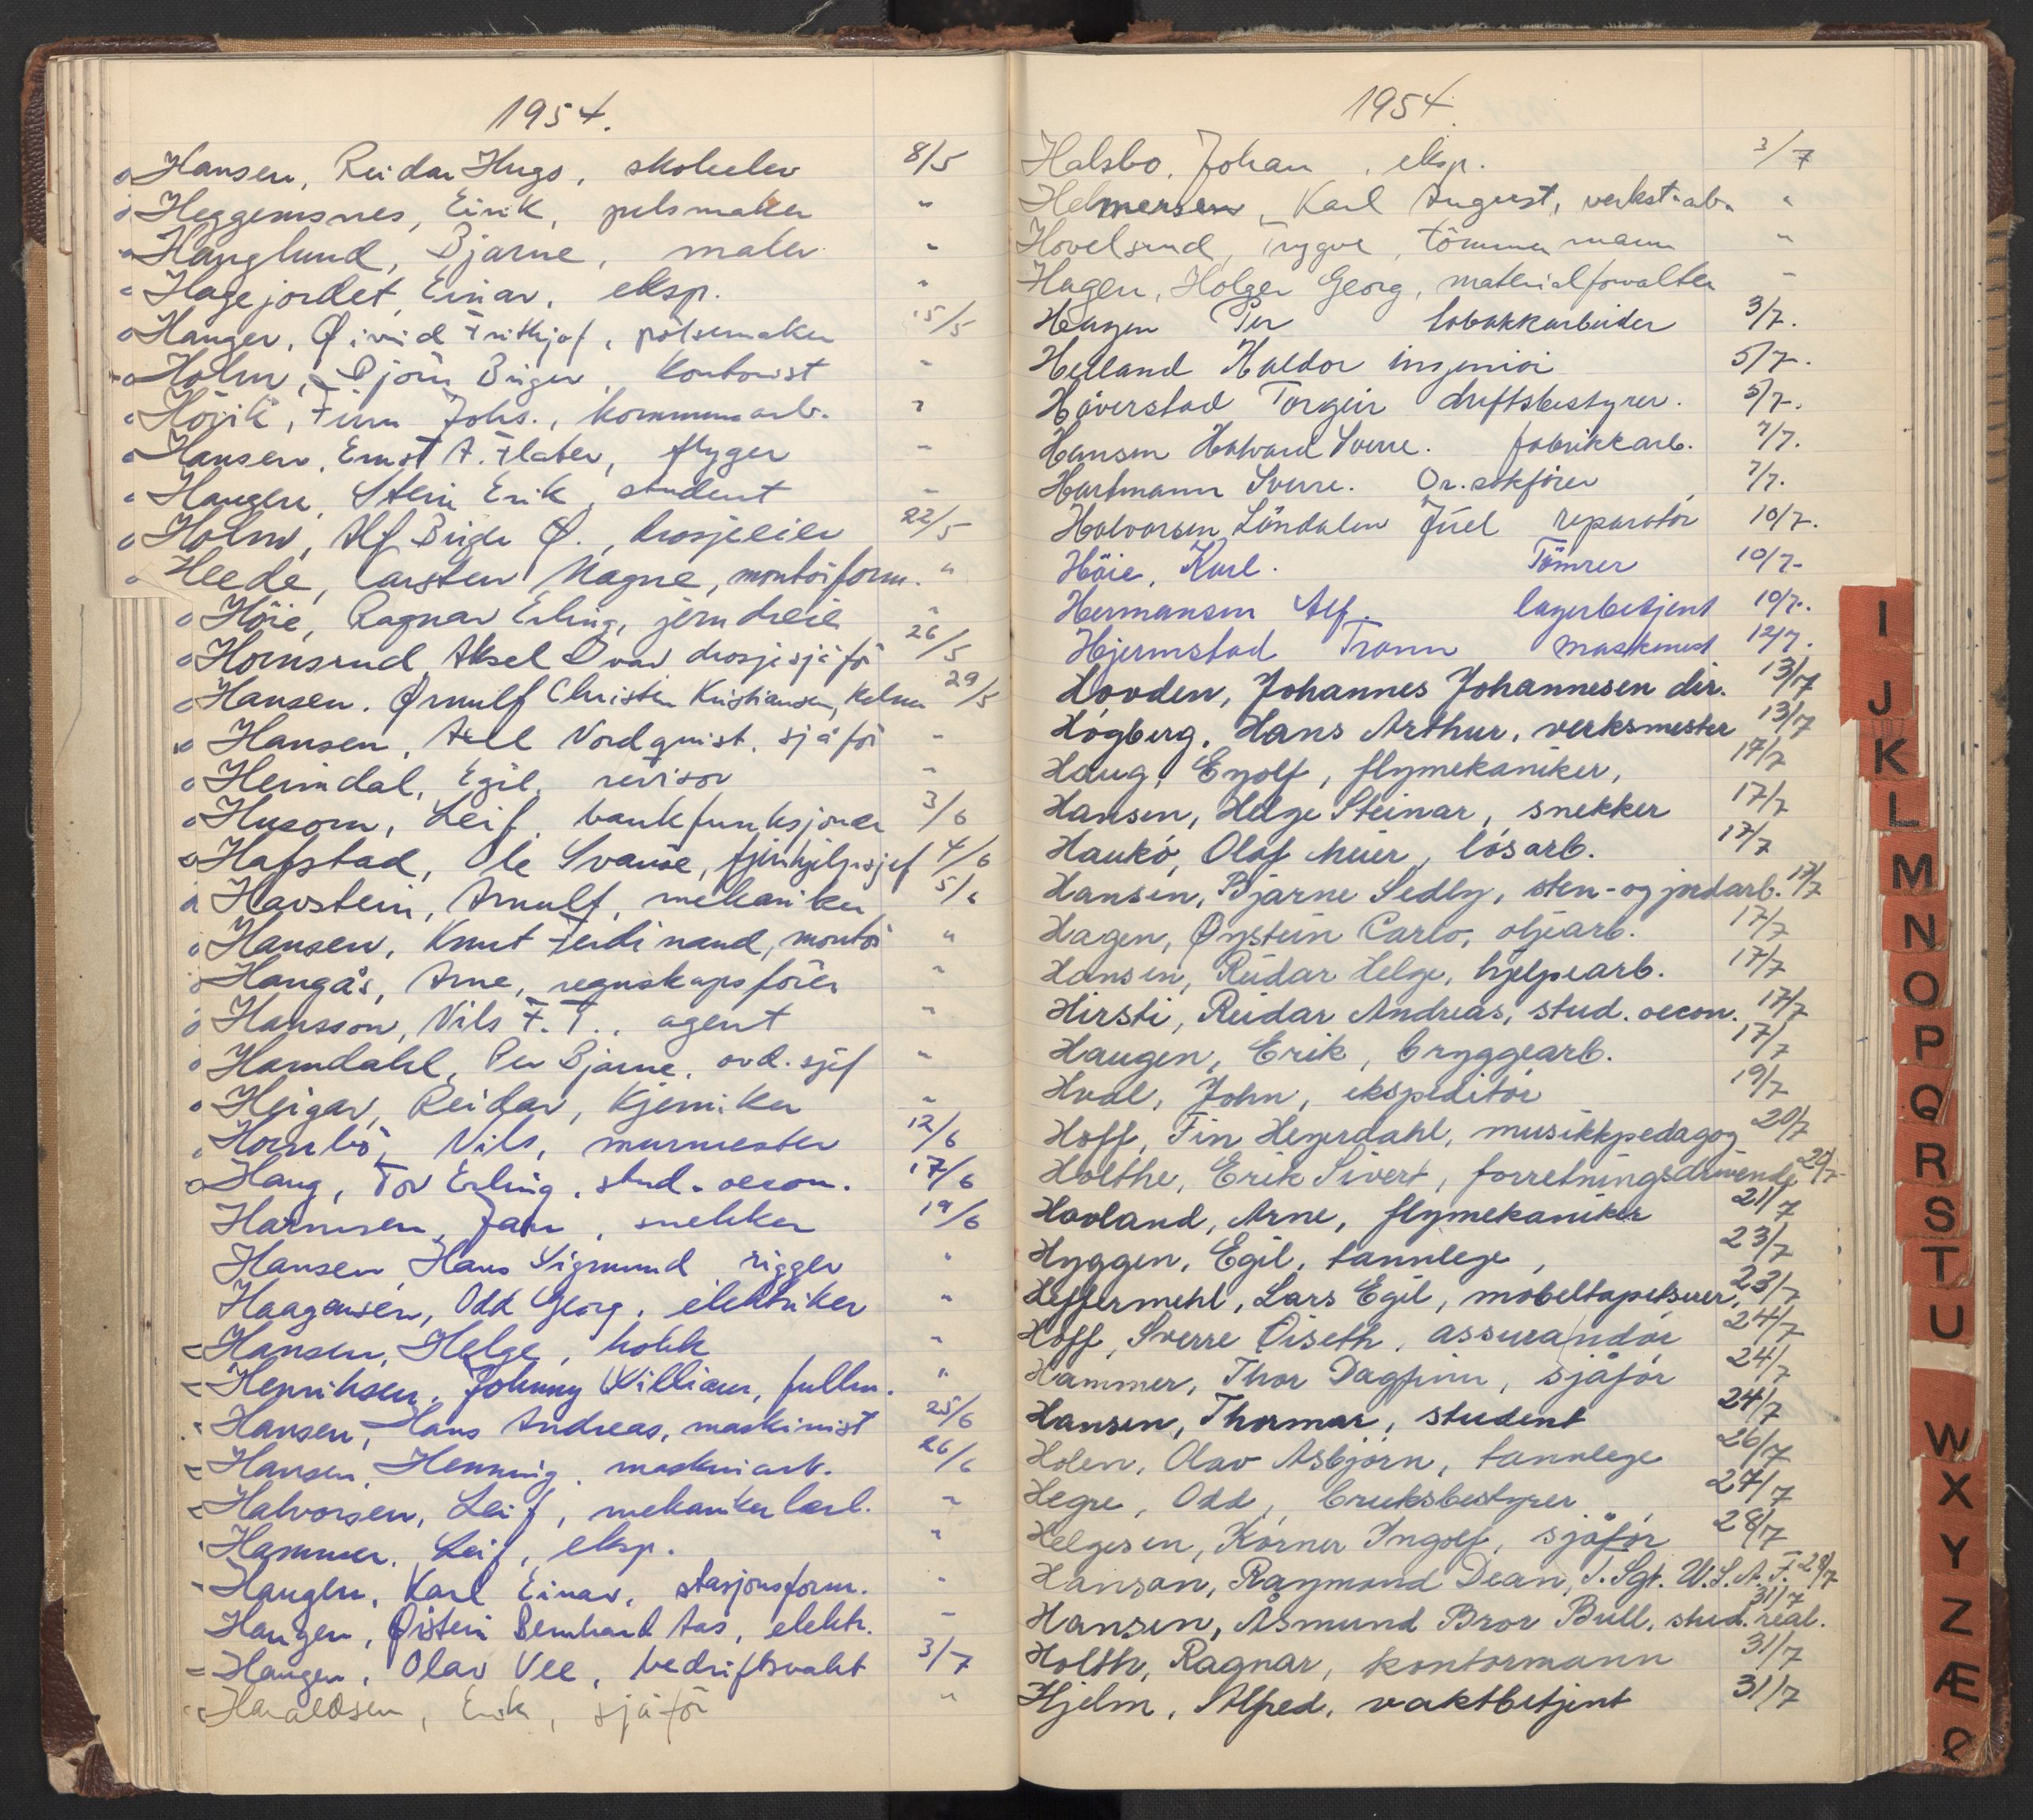 1954.
Hansen, Reidar Hugo, skoleelev 8/5
Heggemsnes, Eirik, pelsmaker "
Hauglund, Bjarne, maler "
Hagejordet, Einar, eksp. "
Hauger, Øivid Frithjof, pølsemaker 15/5
Holm, Björn Birger, Kontorist "
Hövik, Finn Johs., kommunearb. "
Hansen, Ernst A. Flater, flyger "
Haugen, Stein Erik, student "
Holm, Alf Birger Ø., drosjeeier 22/5
Heede, Carsten Magne, montörform. "
Höie, Ragnar Erling, jerndreier "
Hornsrud Aksel Ivar drosjesjåför 26/5
Hansen. Ørnulf Christian Kristiansen, Kelner 29/5
Hansen, Axel Nordquist, sjåför "
Heimdal, Egil, revisor "
Husom, Leif, bankfunksjonær 3/6
Hafstad, Ole Svanøe, 4/6
Havstein, Arnulf, mekaniker 5/6
Hansen, Knut Ferdinand, montör "
Haugås, Arne, regnskapsförer "
Hansson, Nils F. T., agent "
Hamdahl, Per Bjarne, avd. sjef "
Heigar, Reidar, Kjemiker "
Hornbö, Nils, murmester 12/6
Haug, Tor Erling, stud. oecon. 17/6
Harmsen, Jan, snekker 19/6
Hansen, Hans Sigmund rigger "
Haagensen, Odd Georg, elektriker "
Hansen, Helge, kokk "
Henriksen, Johnny William, fullm. "
Hansen, Hans Andreas, maskinist 25/6
Hansen, Henning, maskinarb. 26/6
Halvorsen, Leif, mekanikerlærl. "
Hammer, Leif, eksp. "
Haugen, Karl Einar, stasjonsform. "
Haugen, Øistein Bernhard Aas, elektr. "
Haugen, Olav Vee, bedriftsvakt 3/7
Haraldsen, Erik, sjåför "
1954.
Halsbo, Johan, eksp. 3/7
Helmersen, Karl August, verkst.arb. "
Hovelsrud, Trygve, tömmermann "
Hagen, Holger Georg, materialforvalter "
Haugen Per tobakkarbeider 3/7.
Helland Haldor ingeniör 5/7.
Håverstad Torgeir driftsbestyrer. 5/7.
Hansen Halvard Sverre. fabrikkarb. 7/7.
Hartmann Sverre. Or.sakfører 7/7.
Halvorsen Löndalen Juel reparatör 10/7.
Höie, Karl. Tömrer 10/7-
Hermansen Alf. lagerbetjent 10/7.
Hjermstad Tronn maskinist 12/7.
Hovden, Johannes Johannesen dir. 13/7
Høgberg, Hans Arthur, verksmester 13/7
Haug, Eyolf, flymekaniker, 17/7
Hansen, Helge Steinar, snekker 17/7
Haukö, Olaf Meier, løsarb. 17/7
Hansen, Bjarne Sedly, sten- og jordarb. 17/7
Hagen, Øystein Carlo, oljearb. 17/7
Hansen, Reidar Helge, hjelpearb. 17/7
Hirsti, Reidar Andreas, stud. oecon. 17/7
Haugen, Erik, bryggearb. 17/7
Hvål, John, ekspeditør 19/7
Hoff, Fin Heyerdahl, musikkpedagog 20/7
Holthe, Erik Sivert, forretningsdrivende 20/7
Hovland, Arne, flymekaniker 21/7
Hyggen, Egil, tannlege, 23/7
Heffermehl, Lars Egil, møbeltapetserer, 23/7
Hoff, Sverre Øiseth, assurandør 24/7
Hammer, Thor Dagfinn, sjåfør 24/7
Hansen, Thormar, student 24/7
Holen, Olav Asbjørn, tannlege 26/7
Hegre, Odd, bruksbestyrer 27/7
Helgesen, Kørner Ingolf, sjåfør 28/7
Hanson, Raymond Dean, S. Sgt. U.S.A.F. 28/7
Hansen, Åsmund Bror Bull, stud. real. 31/7
Holth, Ragnar, kontormann 31/7
Hjelm, Alfred, vaktbetjent 31/7
I
J
K
L
M
N
O
P
Q
R
S
T
U
W
X
Y
Z
Æ
Ø